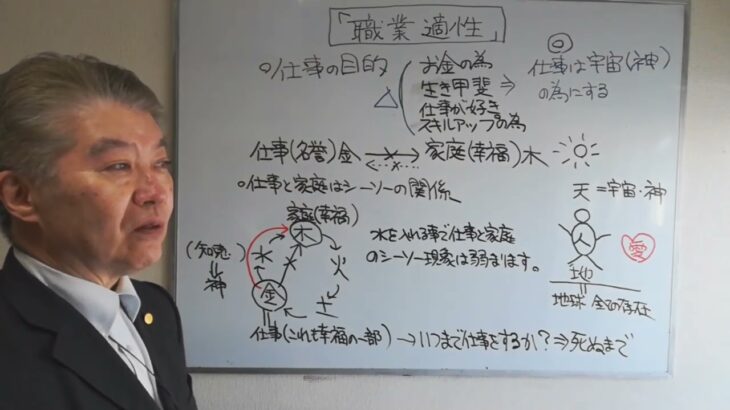 「職業適性」
○仕事の目的
お金の為
生き甲斐
仕事が好き。
スキルアップの為
△
⇒
◎
仕事は宇宙(神)
の為にする
仕事(名誉)金 家庭(幸福)木
○仕事と家庭はシーソーの関係
家庭(幸福)
木
水
火
金
土
(知恵)
神
水を入れる事で仕事と家庭
のシーソー現象は弱まります。
天=宇宙・神
人
愛
地
地球
仕事(これも幸福の一部)→いつまで仕事をするか?⇒死ぬまで